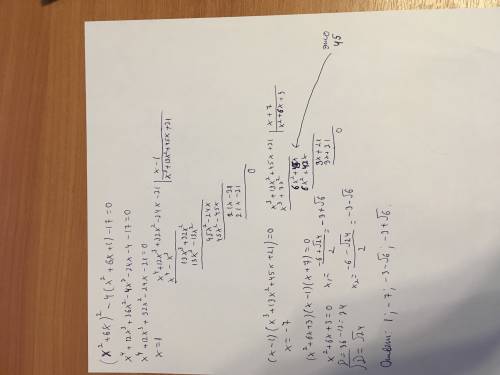 (x²+6x)² - 4(x²+6x+1) - 17 = 0
x⁴+12x³+36x²-4x²-24x-4-17=0
x⁴+12x³+32x²-24x-21=0
x=1
x⁴+12x³+32x²-24x-21 | x-1
x⁴-x³ | x³+13x²+45x+21
13x³+32x²
13x³-13x²
45x²-24x
45x²-45x
21x-21
21x-21
0
(x-1)(x³+13x²+45x+21)=0
x=-7
x³+13x²+45x+21 | x+7
x³+7x² | x²+6x+3
6x²+45x
6x²+42x
3x+21
3x+21
0
это
45
(x²+6x+3)(x-1)(x+7)=0
x²+6x+3=0
D=36-12=24
√D=√24
x₁=(-6+√24)/2=-3+√6
x₂=(-6-√24)/2=-3-√6
Ответ: 1; -7; -3-√6; -3+√6.